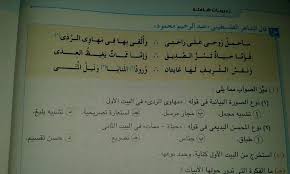 قال الشاعر الفلسطيني «عبد الرحيم محمود»:
سأحمل روحي على راحتي وألقي بها في مهاوي الردى
فإما حياة تسر الصديق وإما ممات يغيظ العدى
ونفس الشريف لها غايتان ورود المنايا ونيل المنى
ميّز الصواب مما يلي:
(١) نوع الصورة البيانية في قوله «مهاوي الردى» في البيت الأول
تشبيه مجمل مجاز مرسل استعارة تصريحية تشبيه بليغ
(٢) نوع المحسن البديعي في قوله «حياة - ممات» في البيت الثاني
طباق جناس تصريع حسن تقسيم
استخرج من البيت الأول كناية، وحدد نوعها
ما الفكرة التي تدور حولها الأبيات